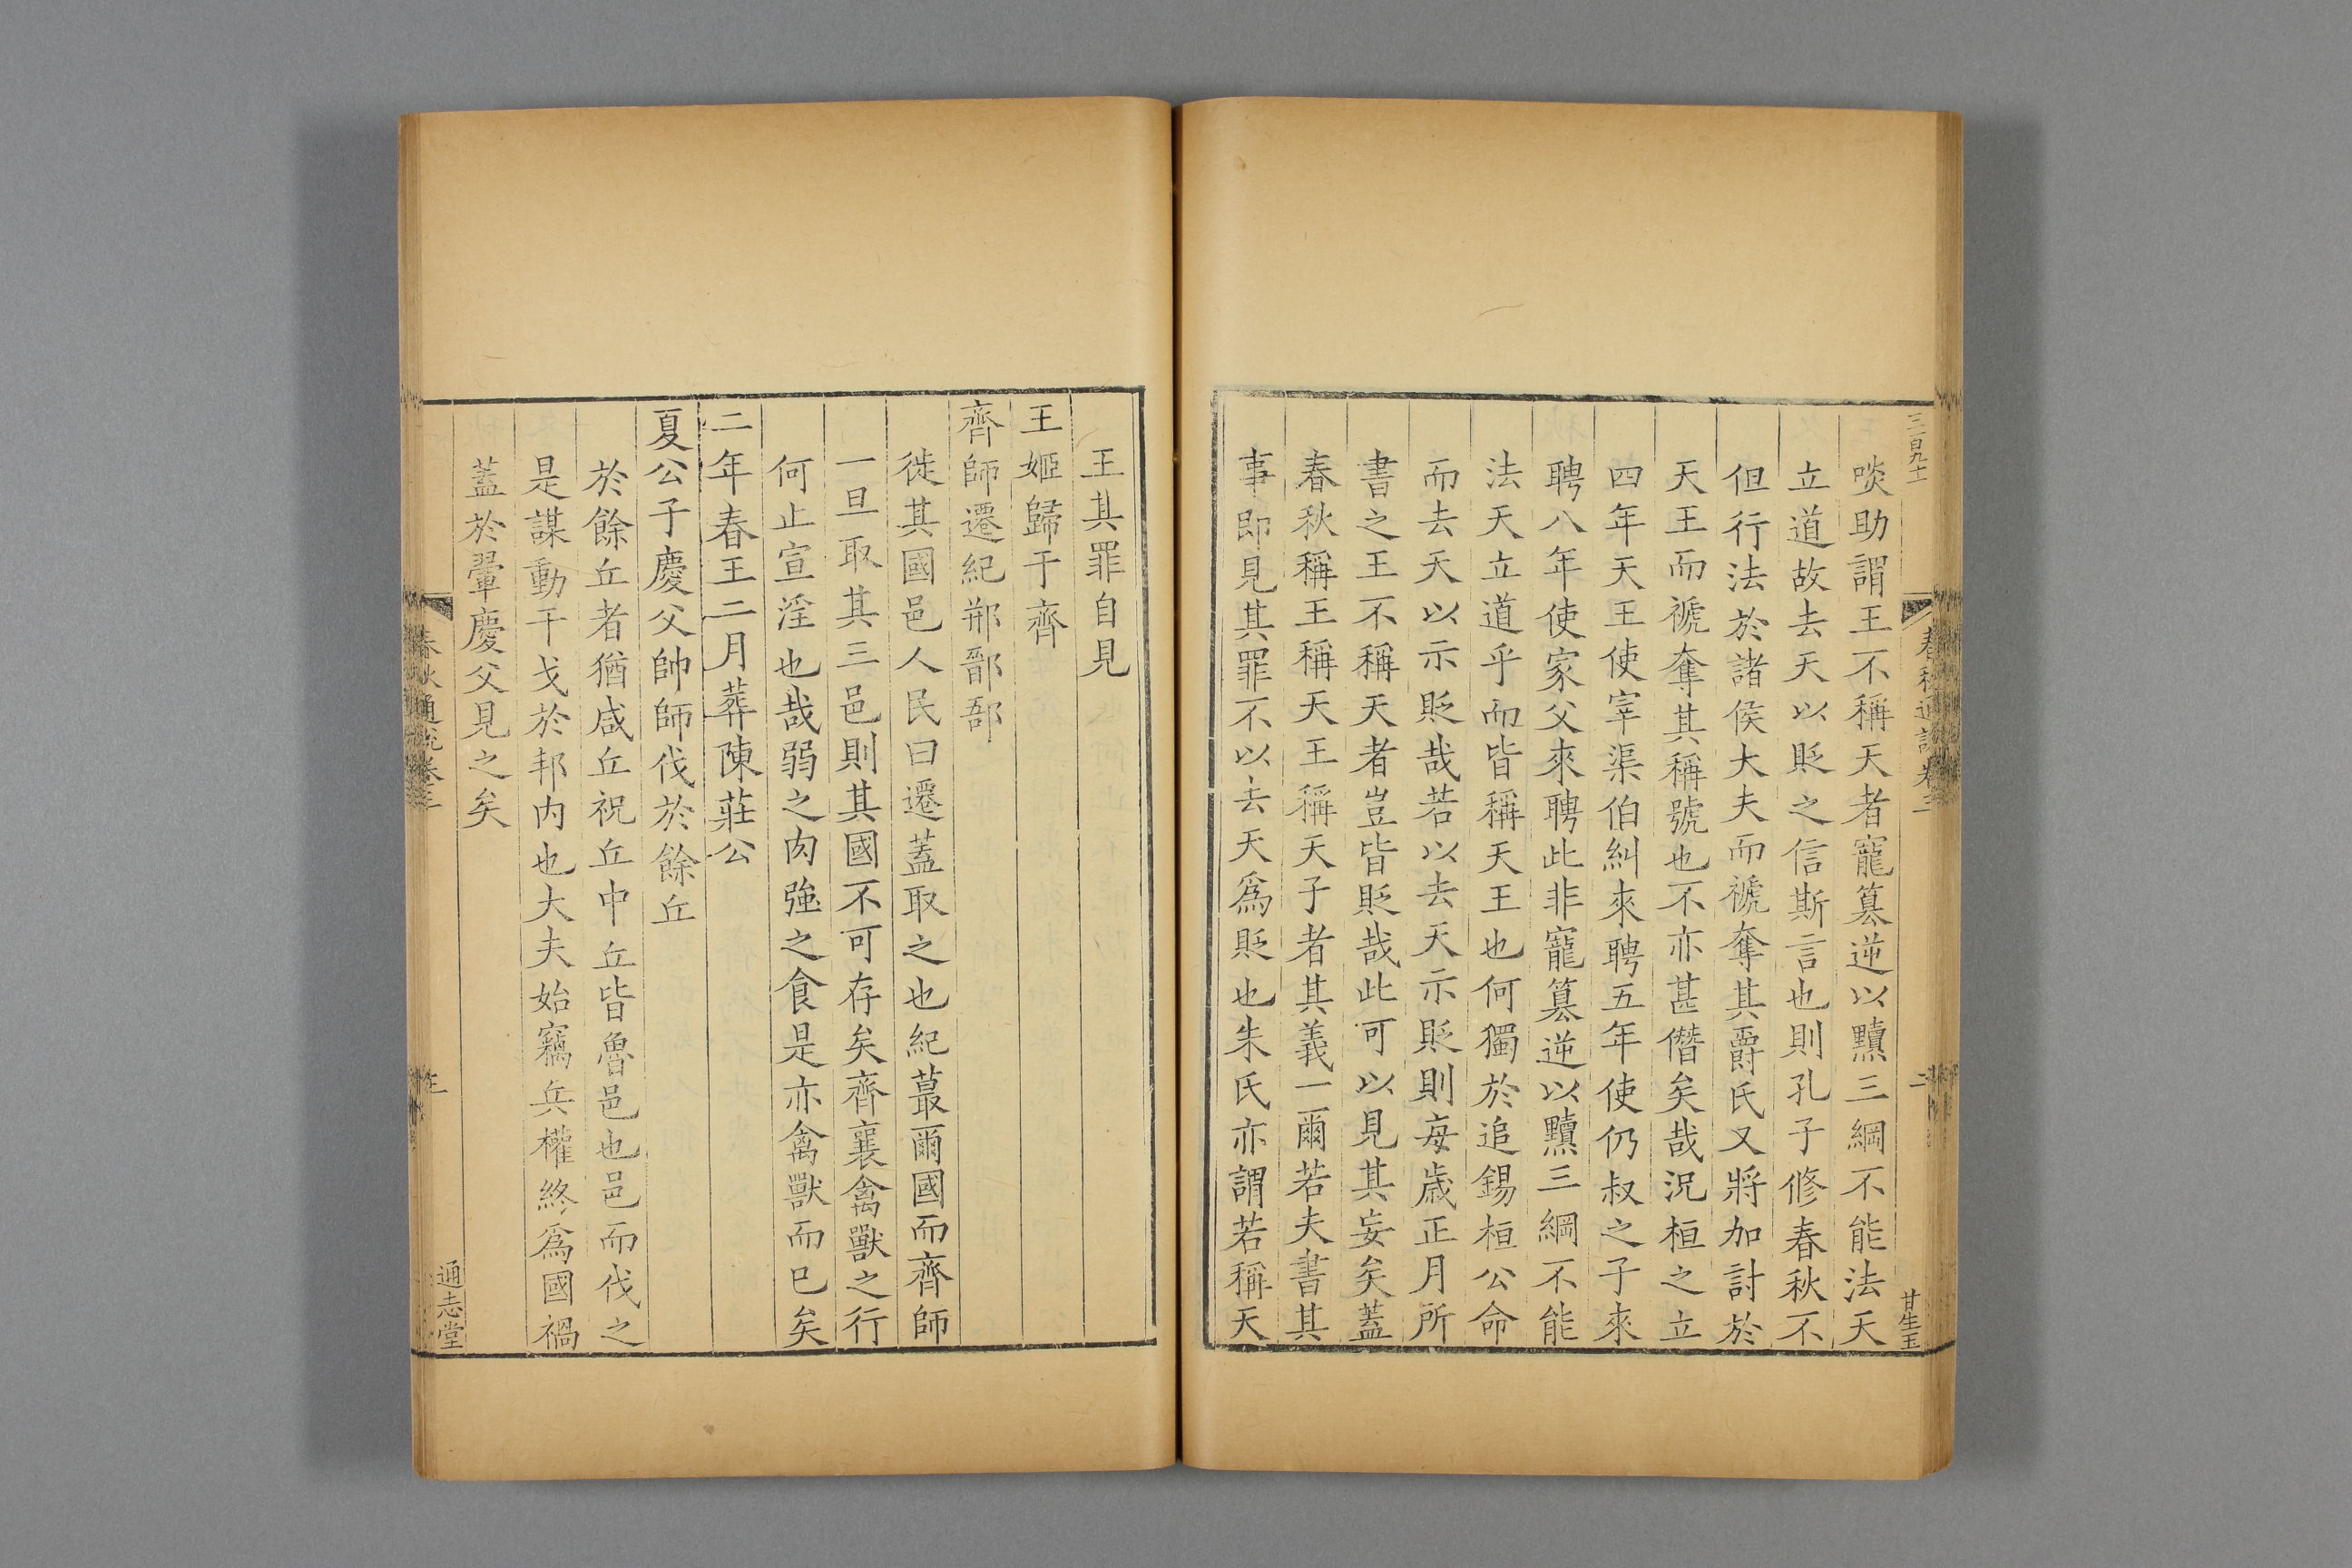 三百九十
春秋通說卷三
二
甘生玉
啖助謂王不稱天者寵篡逆以黷三綱不能法天
立道故去天以貶之信斯言也則孔子修春秋不
但行法於諸侯大夫而褫奪其爵氏又將加討於
天王而褫奪其稱號也不亦甚僭矣哉況桓之立
四年天王使宰渠伯糾來聘五年使仍叔之子來
聘八年使家父來聘此非寵篡逆以黷三綱不能
法天立道乎而皆稱天王也何獨於追錫桓公命
而去天以示貶哉若以去天示貶則每歲正月所
書之王不稱天者豈皆貶哉此可以見其妄矣蓋
春秋稱王稱天王稱天子者其義一爾若夫書其
事即見其罪不以去天爲貶也朱氏亦謂若稱天
王其罪自見
王姬歸于齊
齊師遷紀郱鄑郚
徙其國邑人民曰遷蓋取之也紀蕞爾國而齊師
一旦取其三邑則其國不可存矣齊襄禽獸之行
何止宣淫也哉弱之肉強之食是亦禽獸而已矣
二年春王二月葬陳莊公
夏公子慶父帥師伐於餘丘
於餘丘者猶咸丘祝丘中丘皆魯邑也邑而伐之
是謀動干戈於邦内也大夫始竊兵權終爲國禍
蓋於翬慶父見之矣
春秋通說卷三
通志堂